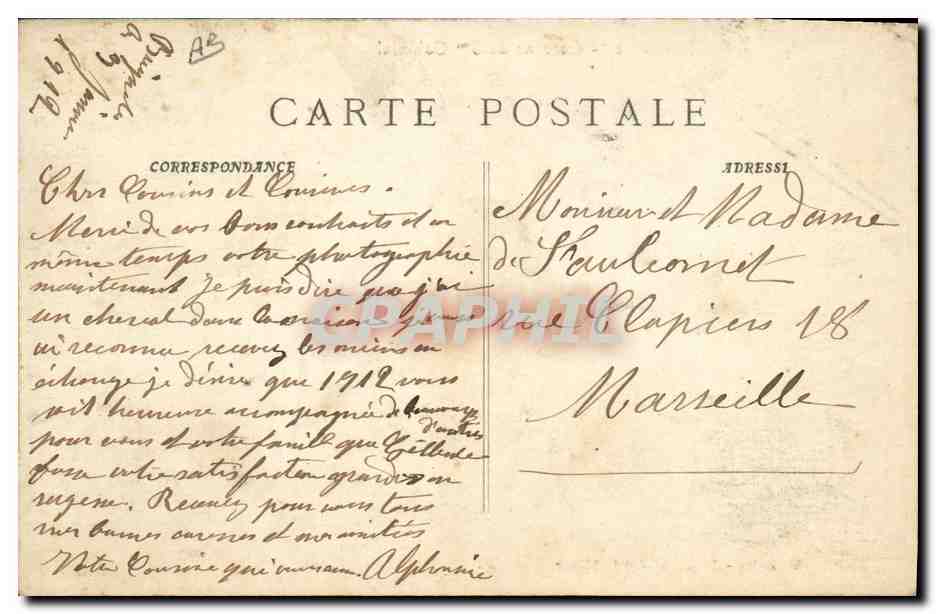 1912
AB
CARTE POSTALE
CORRESPONDANCE
ADRESSE
Chers Cousins et Cousines.
Merci de vos bons souhaits et en
même temps votre photographie
maintenant je puis dire que j'ai
un cheval dans la maison je vous
ai reconnu recevez les miens en
échange je désire que 1912 vous
soit heureuse accompagnée de beaucoup
d'autres
pour vous et votre famille que
fasse votre satisfaction
sagesse. Recevez pour vous tous
mes bonnes caresses et mes amitiés
Votre Cousine qui vous aime. Alphonsine
Monsieur et Madame
de
rue Clapiers 18
Marseille
CPAPHIL